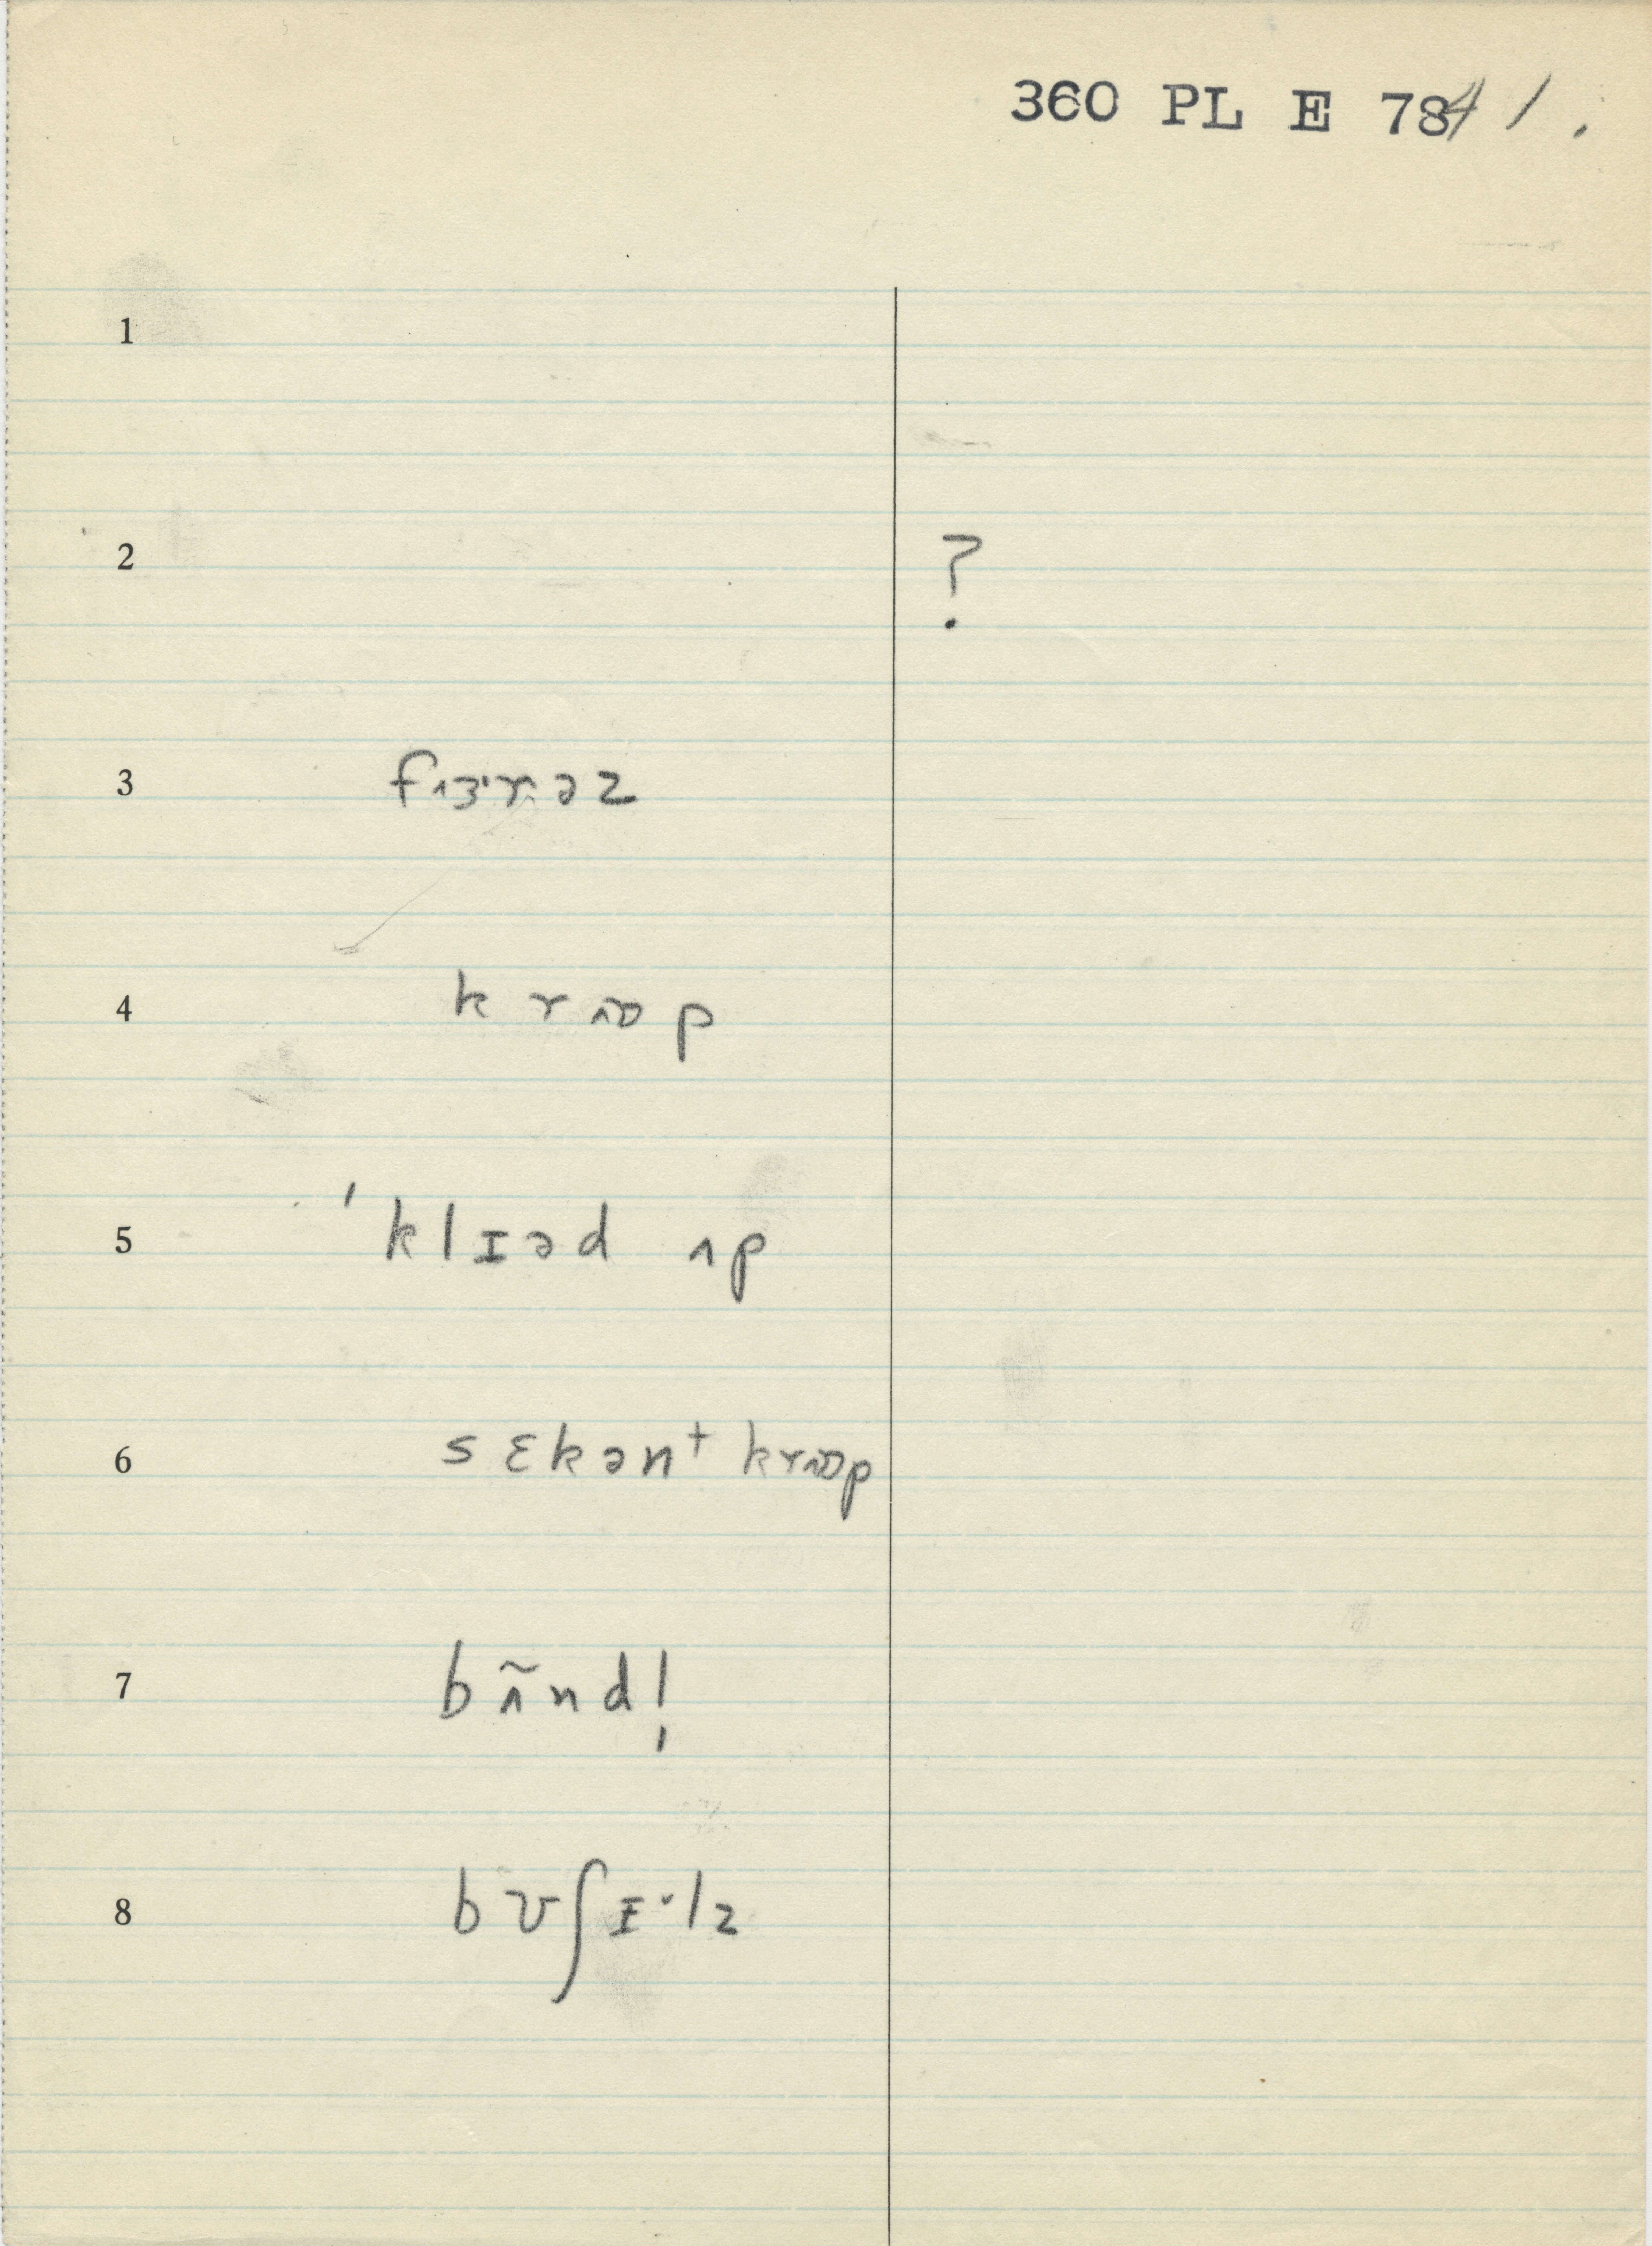 360 PL E 7841.
1
2 ?
3 fɜ˞·ɚəz
4 k r ɒ p
5 ˈklɪəd ʌp
6 sɛkənt krɒp
7 bʌ̃nd!
8 bʊʃɪ·lz